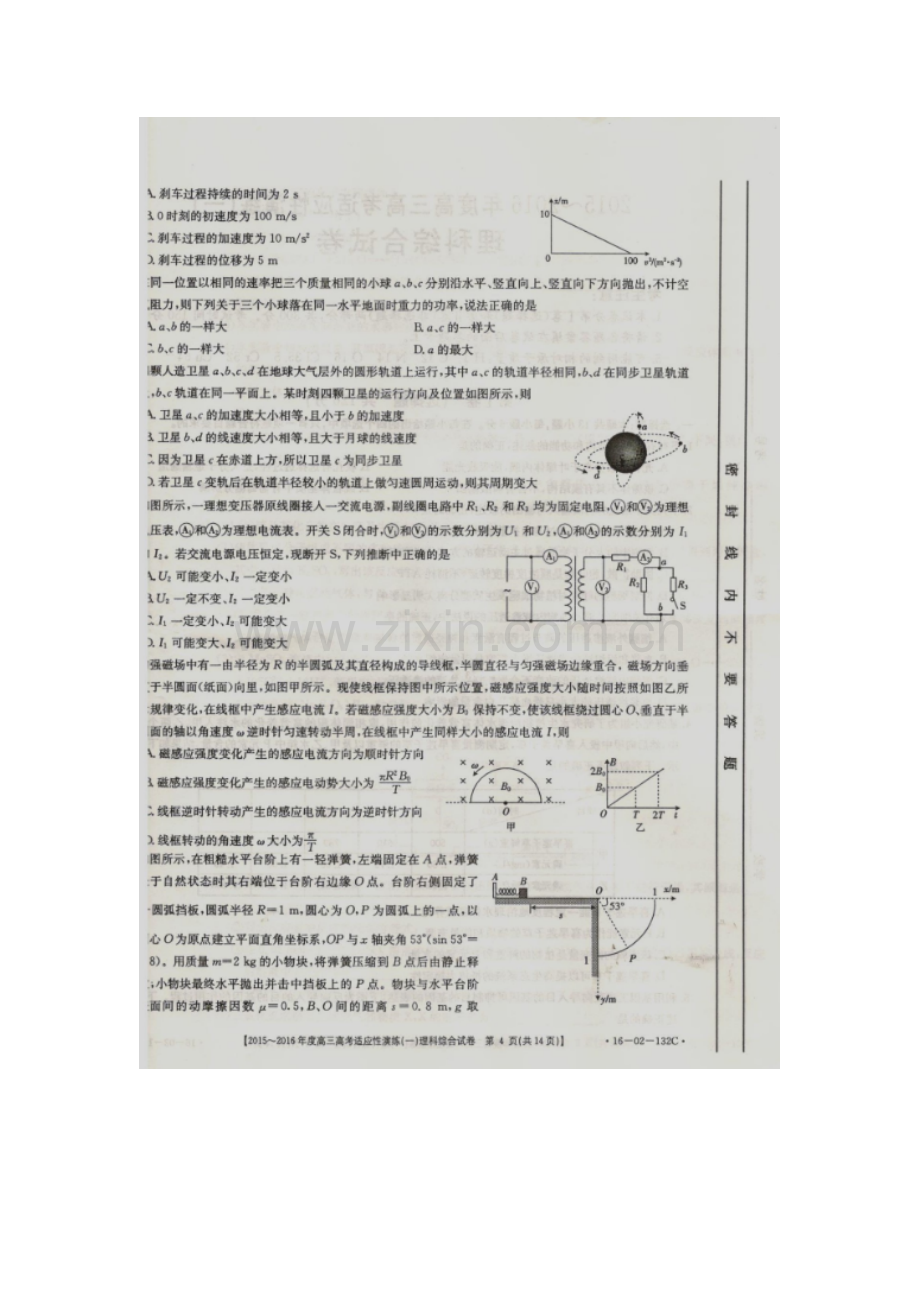 A. 刹车过程持续的时间为 2 s
B. 0 时刻的初速度为 100 m/s
C. 刹车过程的加速度为 10 m/s²
D. 刹车过程的位移为 5 m
x/m
10
0
100 v²/(m²·s⁻²)
同一位置以相同的速率把三个质量相同的小球 a、b、c 分别沿水平、竖直向上、竖直向下方向抛出,不计空
阻力,则下列关于三个小球落在同一水平地面时重力的功率,说法正确的是
A. a、b 的一样大 B. a、c 的一样大
C. b、c 的一样大 D. a 的最大
颗人造卫星 a、b、c、d 在地球大气层外的圆形轨道上运行,其中 a、c 的轨道半径相同,b、d 在同步卫星轨道
,b、c 轨道在同一平面上。某时刻四颗卫星的运行方向及位置如图所示,则
A. 卫星 a、c 的加速度大小相等,且小于 b 的加速度
B. 卫星 b、d 的线速度大小相等,且大于月球的线速度
C. 因为卫星 c 在赤道上方,所以卫星 c 为同步卫星
D. 若卫星 c 变轨后在轨道半径较小的轨道上做匀速圆周运动,则其周期变大
a
b
c
d
图所示,一理想变压器原线圈接入一交流电源,副线圈电路中 R₁、R₂ 和 R₃ 均为固定电阻,V₁和V₂为理想
压表,A₁和A₂为理想电流表。开关 S 闭合时,V₁和V₂的示数分别为 U₁ 和 U₂,A₁和A₂的示数分别为 I₁
I₂。若交流电源电压恒定,现断开 S,下列推断中正确的是
A. U₂ 可能变小、I₂ 一定变小
B. U₂ 一定不变、I₂ 一定变小
C. I₁ 一定变小、I₂ 可能变大
D. I₁ 可能变大、I₂ 可能变大
A₁ A₂ V₁ V₂ R₁ R₂ R₃ a b S
www.zixin.com.cn
强磁场中有一由半径为 R 的半圆弧及其直径构成的导线框,半圆直径与匀强磁场边缘重合,磁场方向垂
于半圆面(纸面)向里,如图甲所示。现使线框保持图中所示位置,磁感应强度大小随时间按照如图乙所
规律变化,在线框中产生感应电流 I。若磁感应强度大小为 B₀ 保持不变,使该线框绕过圆心 O、垂直于半
面的轴以角速度 ω 逆时针匀速转动半周,在线框中产生同样大小的感应电流 I,则
A. 磁感应强度变化产生的感应电流方向为顺时针方向
B. 磁感应强度变化产生的感应电动势大小为 πR²B₀/T
C. 线框逆时针转动产生的感应电流方向为逆时针方向
D. 线框转动的角速度 ω 大小为 π/T
ω
B₀
O
甲
B
2B₀
B₀
O T 2T t
乙
图所示,在粗糙水平台阶上有一轻弹簧,左端固定在 A 点,弹簧
于自然状态时其右端位于台阶右边缘 O 点。台阶右侧固定了
圆弧挡板,圆弧半径 R=1 m,圆心为 O,P 为圆弧上的一点,以
心 O 为原点建立平面直角坐标系,OP 与 x 轴夹角 53°(sin 53°=
8)。用质量 m=2 kg 的小物块,将弹簧压缩到 B 点后由静止释
,小物块最终水平抛出并击中挡板上的 P 点。物块与水平台阶
面间的动摩擦因数 μ=0.5,B、O 间的距离 s=0.8 m,g 取
A B O 1 x/m
53°
s
1
P
y/m
【2015~2016 年度高三高考适应性演练(一)理科综合试卷 第 4 页(共 14 页)】 ·16-02-132C·
密封线内不要答题